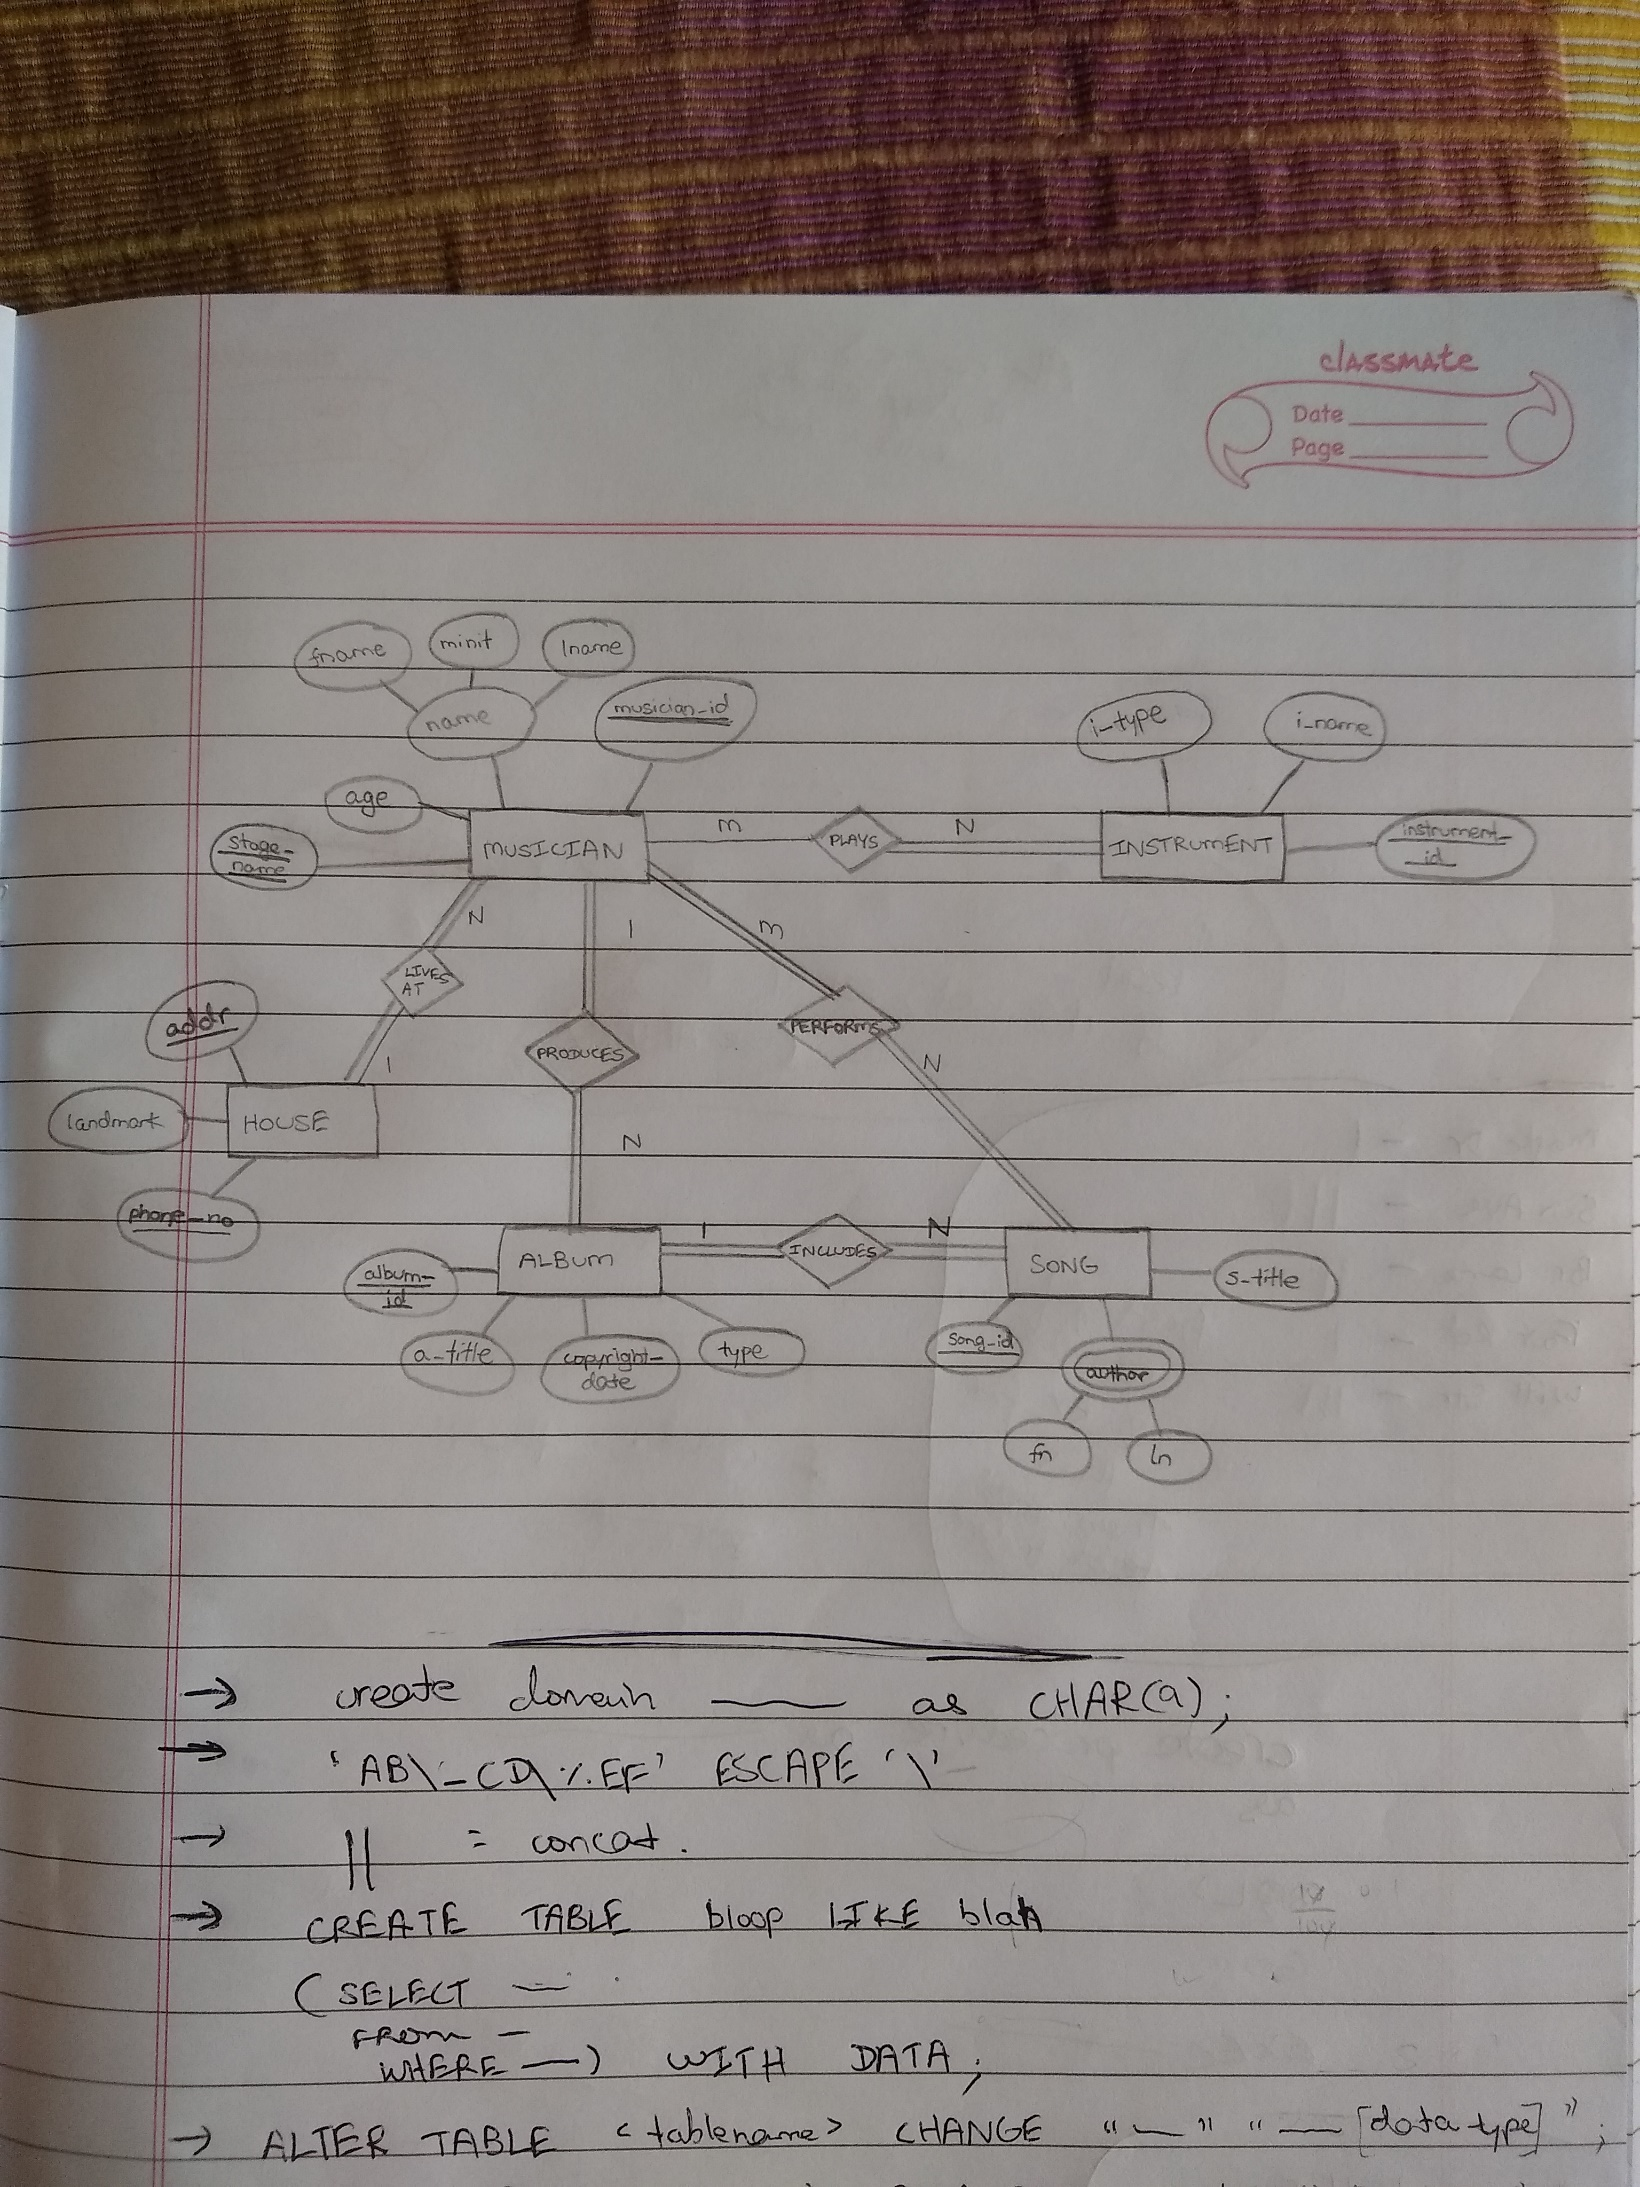 classmate
Date
Page
fname minit lname
name musician_id i-type i_name
age
stage-
name
MUSICIAN m PLAYS N INSTRUMENT instrument_
id
N 1 m
LIVES
AT
addr PERFORMS
PRODUCES
1 N
landmark HOUSE
N
phone_no
ALBUM 1 INCLUDES N SONG s-title
album-
id
a-title copyright-
date
type song_id author
fn ln
→ create domain —— as CHAR(a);
→ 'AB\_CD\%EF' ESCAPE '\'
→ || = concat.
→ CREATE TABLE bloop LIKE blah
(SELECT —
FROM —
WHERE —) WITH DATA;
→ ALTER TABLE <tablename> CHANGE "—" "— [data type]";